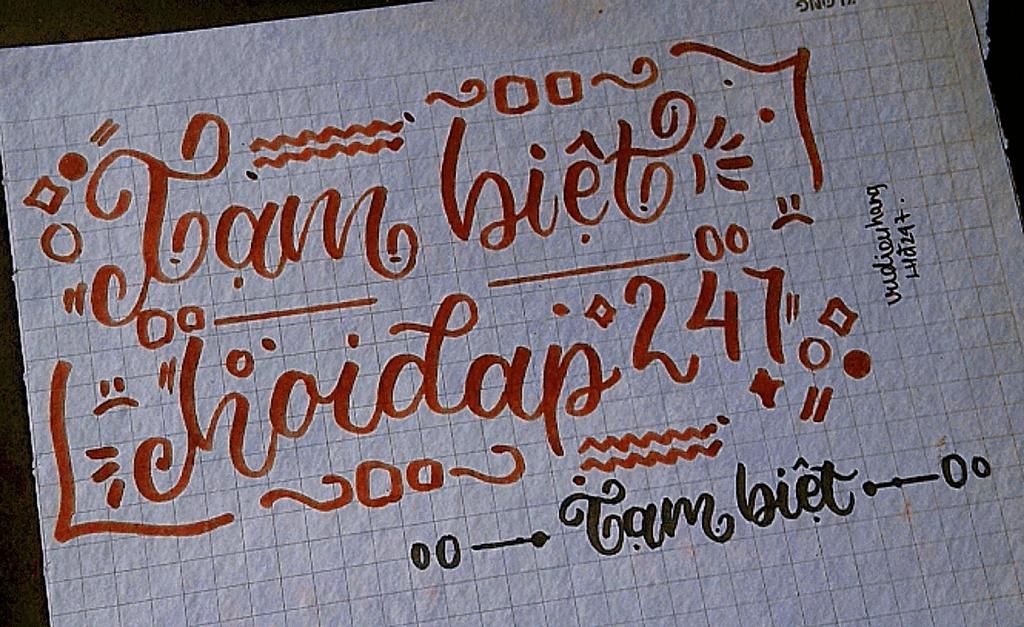 Tạm biệt
hoidap 247
Tạm biệt
vudieuhang